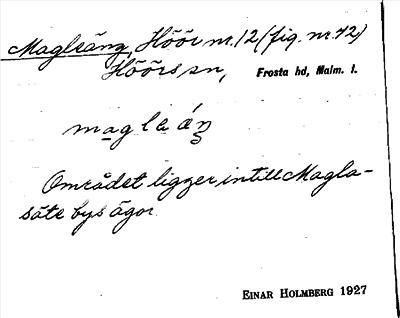 Maglräng, Höör nr. 12 (fig. nr. 42)
Höörs sn, Frosta hd, Malm. l.
Området ligger intill Magla-
säte bys ägor.
EINAR HOLMBERG 1927